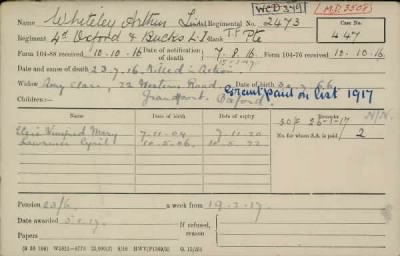 WCD 379 M.R 3508
Name Whiteley Arthur Regimental No. 2473 Case No.
Regiment 4th Oxford & Bucks L.I T.F. Pte 447
Form 104-88 received 10.10.16 Date of notification of death 7.8.16 Form 104-76 received 10.10.16
Date and cause of death 23.7.16 Killed in Action
Widow Amy Clara, 22 Western Road, Date of birth
Grandpont, Oxford. Grant paid on list 1917
Children:—
Date of birth Date of expiry Remarks
Elsie Winifred Mary 7-11-04 7-11-20 30/2 26-1-17
Lawrence Cyril 10-5-06 10-5-22 No. for whom S.A. is paid 2
Pension 23/6 a week from 19-2-17
Date awarded 5.1.17. If refused, reason
Papers